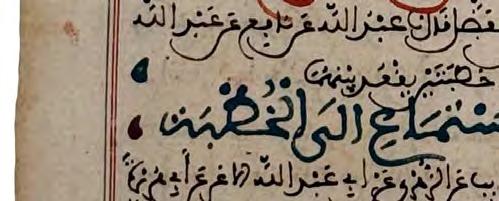 المفضل قال نا عبيد الله عن نافع عن عبد الله
خطبتين يقعد بينهما
الاستماع الى الخطبة
عن الزهري وعن أبي عبد الله الاغر عن أبي هريرة